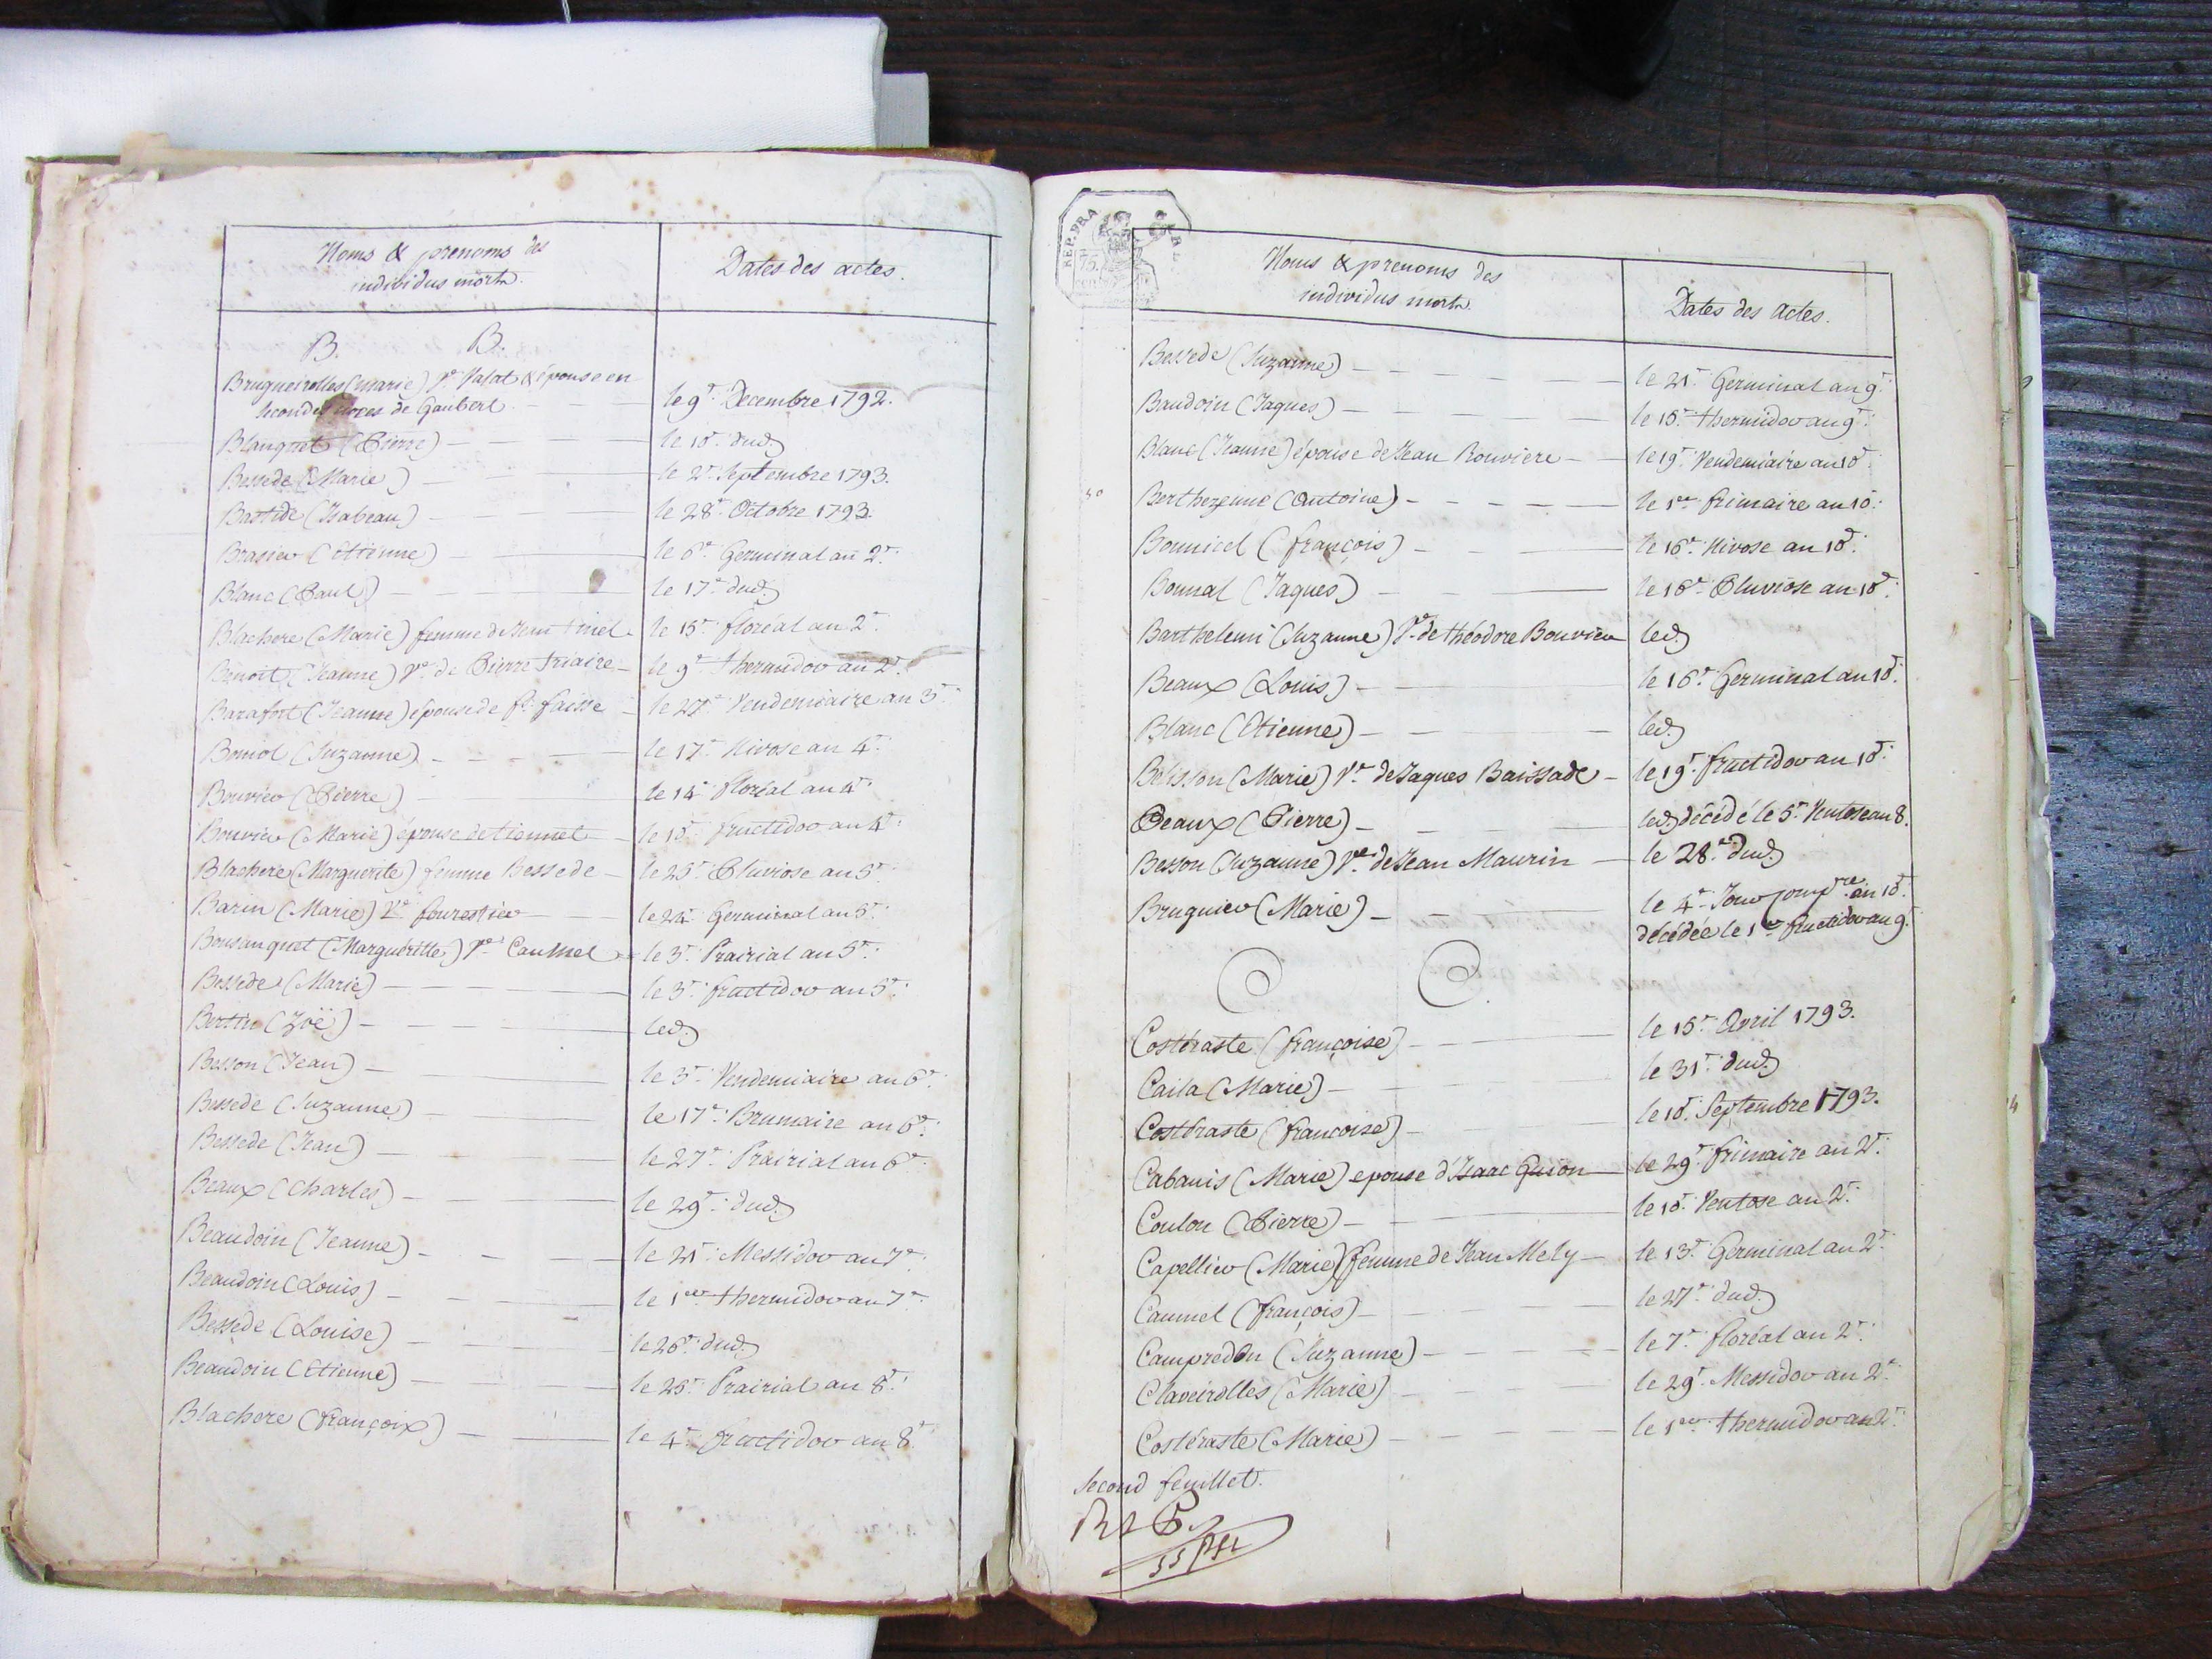 Noms & prenoms des
individus morts.
Dates des actes.
B. B.
Brugueirolles (Marie) Ve Valat & épouse en
secondes noces de Gaubert
le 9e Decembre 1792.
Blanquet (Pierre)
le 10e dud.
Bessede (Marie)
le 2e Septembre 1793.
Bastide (Isabeau)
le 28e Octobre 1793.
Brasier (Etienne)
le 6e Germinal an 2e
Blanc (Paul)
le 17e dud.
Blachere (Marie) femme de Jean
le 15e floréal an 2e
Benoit (Jeanne) Ve de Pierre Triaire
le 9e thermidor an 2e
Barafort (Jeanne) épouse de fs faisse
le 27e Vendemiaire an 3e
Boniol (Suzanne)
le 17e Nivose an 4e
Bouvier (Pierre)
le 14e floréal an 4e
Bouvier (Marie) épouse
le 10e fructidor an 4e
Blachere (Marguerite) femme Bessede
le 25e Pluviose an 5e
Barin (Marie) Ve fourestier
le 24e Germinal an 5e
Bousanquet (Margueritte) Ve Caumel
le 3e Prairial an 5e
Bessede (Marie)
le 3e fructidor an 5e
Bertin (Zoë)
led.
Besson (Jean)
le 3e Vendemiaire an 6e
Bessede (Suzanne)
le 17e Brumaire an 6e
Bessede (Jean)
le 27e Prairial an 6e
Beaux (Charles)
le 29e dud.
Beaudoin (Jeanne)
le 21e Messidor an 7e
Beaudoin (Louis)
le 1er thermidor an 7e
Bessede (Louise)
le 26e dud.
Beaudoin (Etienne)
le 25e Prairial an 8e
Blachere (françoix)
le 4e fructidor an 8e
REP. FRA
75
Noms & prenoms des
individus morts.
Dates des actes.
Bessede (Suzanne)
le 21e Germinal an 9e
Baudoin (Jaques)
le 15e thermidor an 9e
Blanc (Jeanne) épouse de Jean Rouviere
le 19e Vendemiaire an 10e
Berthezenne (Antoine)
le 1er frimaire an 10e
Bonnicel (françois)
le 16e Nivose an 10e
Bonnal (Jaques)
le 16e Pluviose an 10e
Barthelemi (Suzanne) Ve de théodore Bouvier
led.
Beaux (Louis)
le 16e Germinal an 10e
Blanc (Etienne)
led.
Belisson (Marie) Ve de Jaques Baissade
le 19e fructidor an 10e
Beaux (Pierre)
led. décédé le 5e Ventose an 8.
Besson (Suzanne) Ve de Jean Maurin
le 28e dud.
Bruguier (Marie)
le 4e Jour compre an 10e
décédée le 1er fructidor an 9e
C C
Costéraste (françoise)
le 15e Avril 1793.
Caila (Marie)
le 31e dud.
Costéraste (francoise)
le 10e Septembre 1793.
Cabanis (Marie) epouse d'Isaac Guion
le 29e frimaire an 2e
Coulon (Pierre)
le 10e Ventose an 2e
Capellier (Marie) femme de Jean Mely
le 13e Germinal an 2e
Caumel (françois)
le 27e dud.
Campredon (Suzanne)
le 7e floréal an 2e
Claveirolles (Marie)
le 29e Messidor an 2e
Costéraste (Marie)
le 1er thermidor an 2e
Second feuillet.